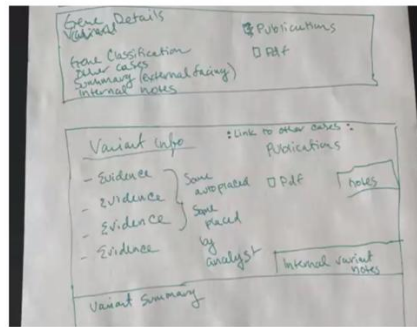 Gene Details
Publications
Pdf
Gene Classification
Other cases
Summary (external facing)
Internal notes
Variant Info
: Link to other cases :
Publications
- Evidence
- Evidence
- Evidence
- Evidence
Some autoplaced
Some placed by analyst
Pdf
Notes
Internal variant notes
Variant Summary